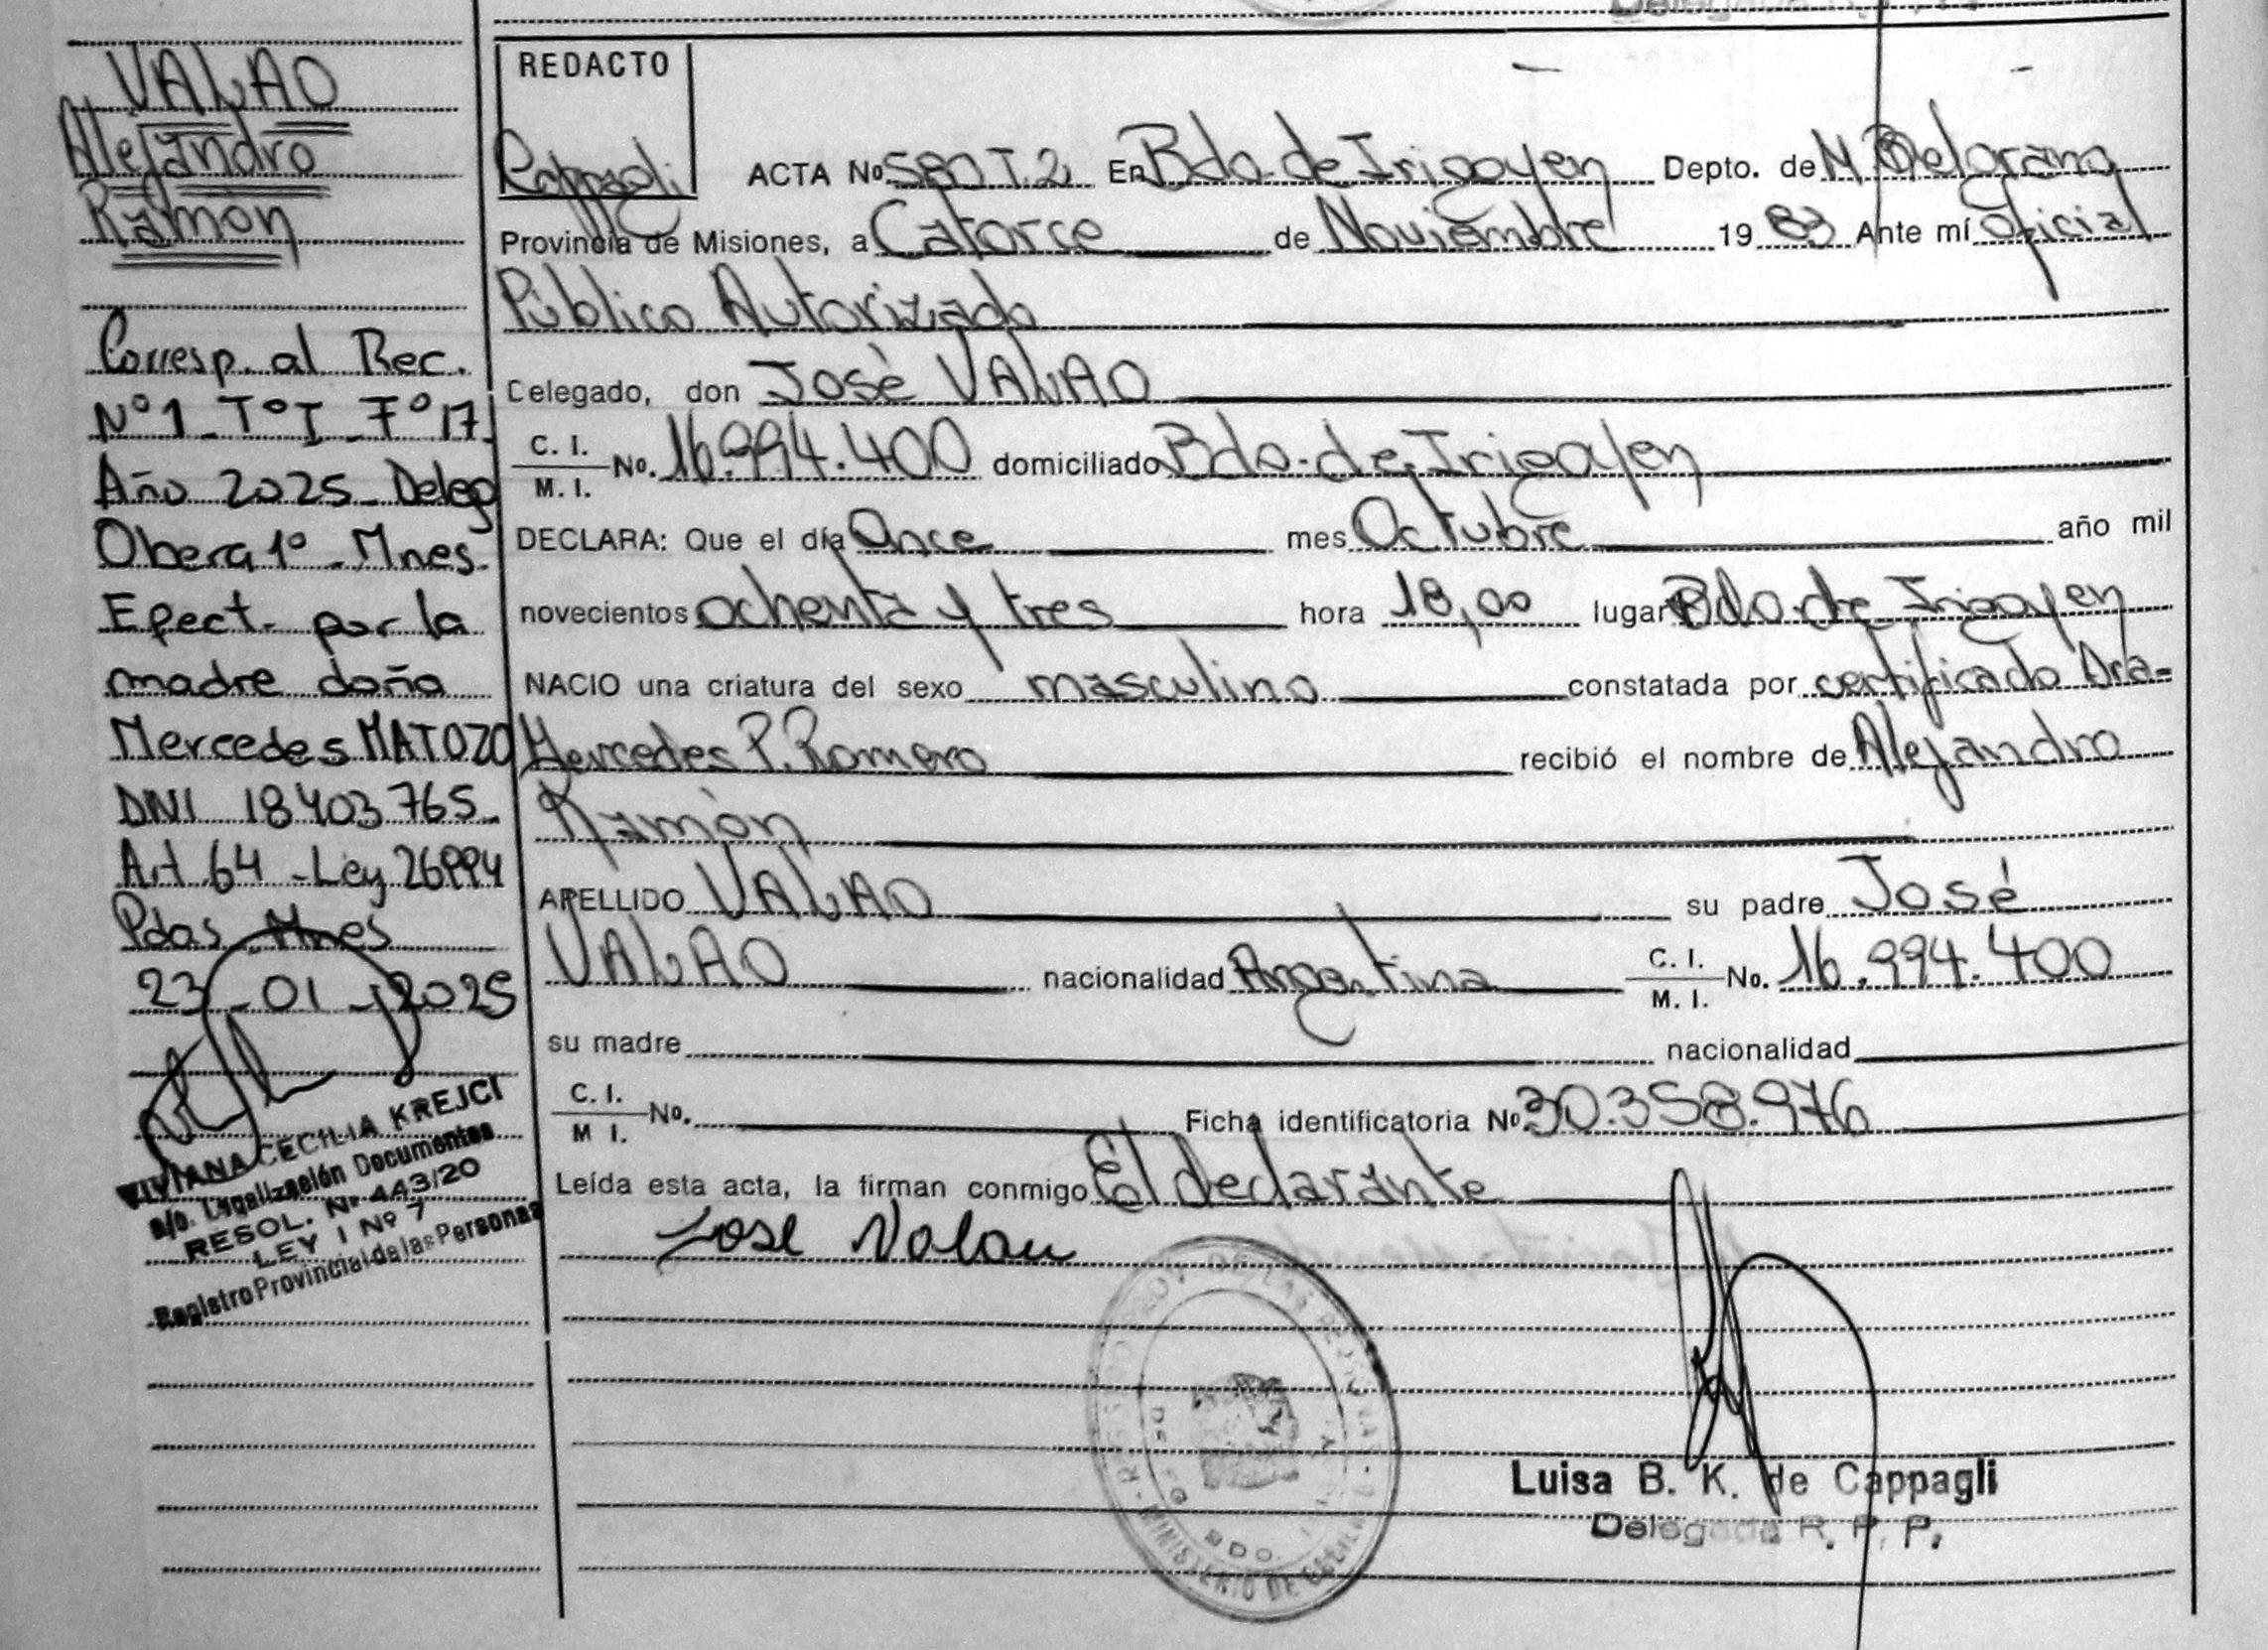 VALAO
Alejandro
Ramón
Corresp. al Rec.
Nº1 - TºI - Fº17
Año 2025 - Deleg
Obera 1º - Mnes.
Efect. por la
madre doña
Mercedes MATOZO
DNI 18403765-
Art 64 - Ley 26994
Pdas Mnes
23-01-2025
VIVIANA CECILIA KREJCI
a/c. Legalización Documentos
RESOL. Nº 443/20
LEY I Nº 7
Registro Provincial de las Personas
REDACTO
Cappagli
ACTA No 580 T.2 En Bdo. de Irigoyen Depto. de M. Belgrano
Provincia de Misiones, a Catorce de Noviembre 1983 Ante mí Oficial
Público Autorizado
Delegado, don José VALAO
C. I. / M. I. No. 16.994.400 domiciliado Bdo. de Irigoyen
DECLARA: Que el día Once mes Octubre año mil
novecientos ochenta y tres hora 18,00 lugar Bdo. de Irigoyen
NACIO una criatura del sexo masculino constatada por certificado Dra-
Mercedes P. Romero recibió el nombre de Alejandro
Ramón
APELLIDO VALAO su padre José
VALAO nacionalidad Argentina C. I. / M. I. No. 16.994.400
su madre nacionalidad
C. I. / M I. No. Ficha identificatoria No. 30.358.976
Leída esta acta, la firman conmigo El declarante
Jose Valau
Luisa B. K. de Cappagli
Delegada R. P. P.